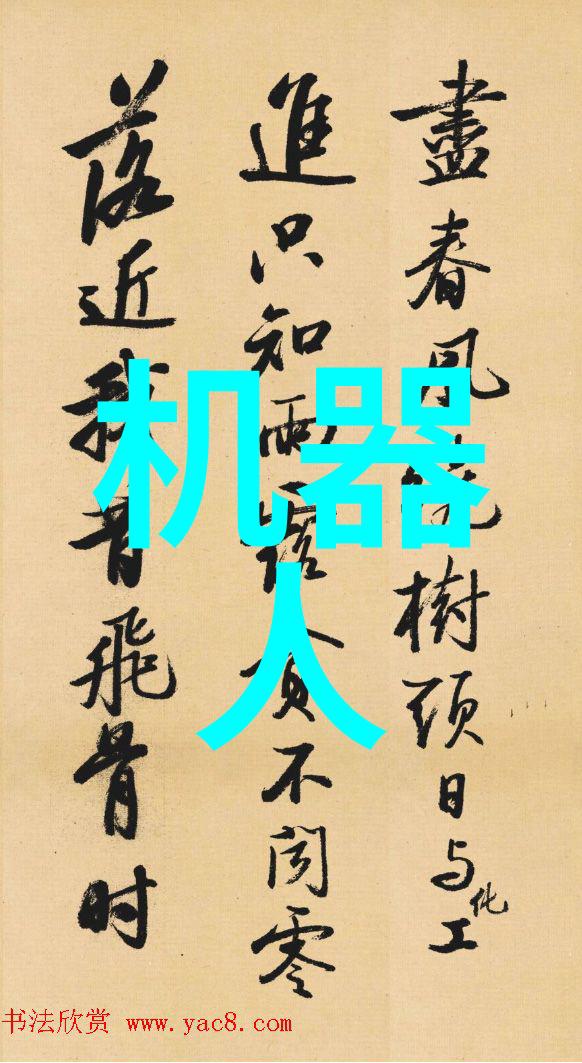 盡春風繞樹頭日与化工
進只知雨露貪不闻零
落近我昔飛骨时
机器
人
书法欣赏 www.yac8.com